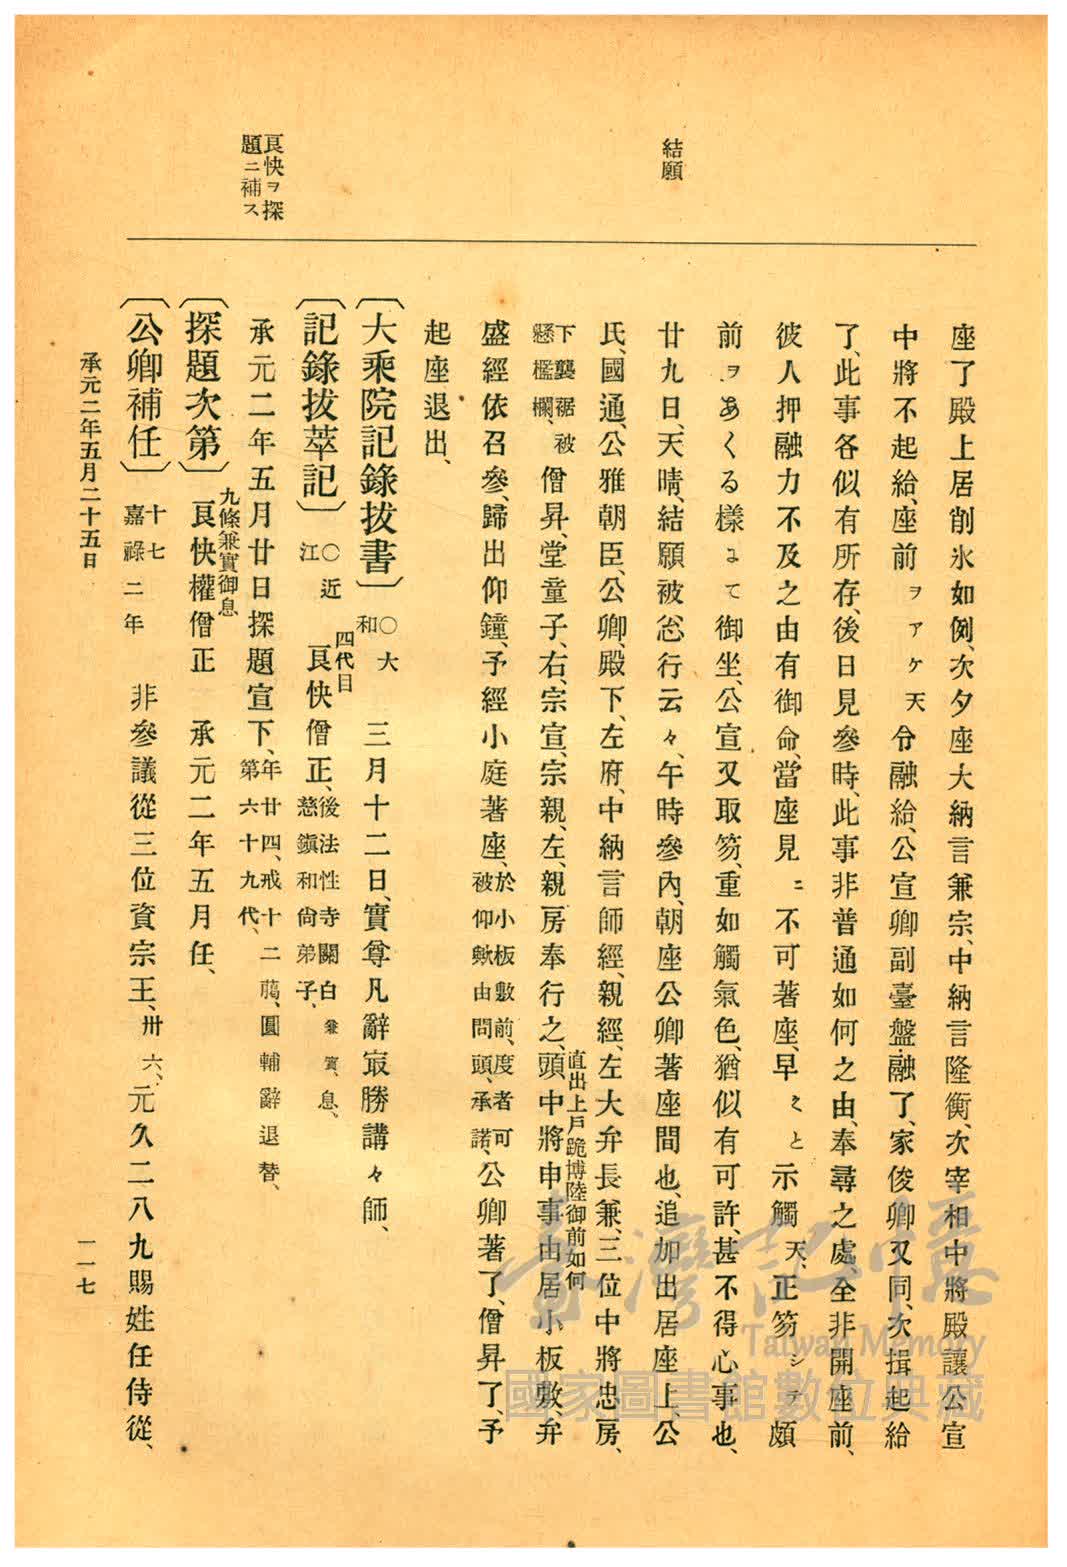 結願
良快ヲ探
題ニ補ス
座了殿上居削氷如例、次夕座大納言兼宗、中納言隆衡、次宰相中將殿讓公宣
中將不起給、座前ヲアケ天令融給、公宣卿副臺盤融了、家俊卿又同、次揖起給
了、此事各似有所存、後日見參時、此事非普通如何之由、奉尋之處、全非開座前、
彼人押融力不及之由有御命、當座見ニ不可著座、早々と示觸天、正笏シテ頗
前ヲあくる樣ニて御坐、公宣又取笏、重如觸氣色、猶似有可許、甚不得心事也、
廿九日、天晴、結願被忩行云々、午時參內、朝座公卿著座間也、追加出居座上、公
氏、國通、公雅朝臣、公卿、殿下、左府、中納言師經、親經、左大弁長兼、三位中將忠房、
下襲裾被懸檻欄、僧昇、堂童子、右、宗宣、宗親、左、親房奉行之、頭中將申事由居小板敷、弁
直出上戶跪博陸御前如何
盛經依召參、歸出仰鐘、予經小庭著座、於小板敷前、度者可被仰歟由問頭、承諾、公卿著了、僧昇了、予
起座退出、
〔大乘院記錄拔書〕○大和 三月十二日、實尊凡辭㝡勝講々師、
〔記錄拔萃記〕○近江 四代目 良快僧正、後法性寺關白兼實息、慈鎭和尙弟子、
承元二年五月廿日探題宣下、年廿四、戒十二﨟、圓輔辭退替、第六十九代、
〔探題次第〕九條兼實御息 良快權僧正 承元二年五月任、
〔公卿補任〕十七嘉祿二年 非參議從三位資宗王、卅六、元久二八九賜姓任侍從、
承元二年五月二十五日
一一七
臺灣記憶
Taiwan Memory
國家圖書館數位典藏